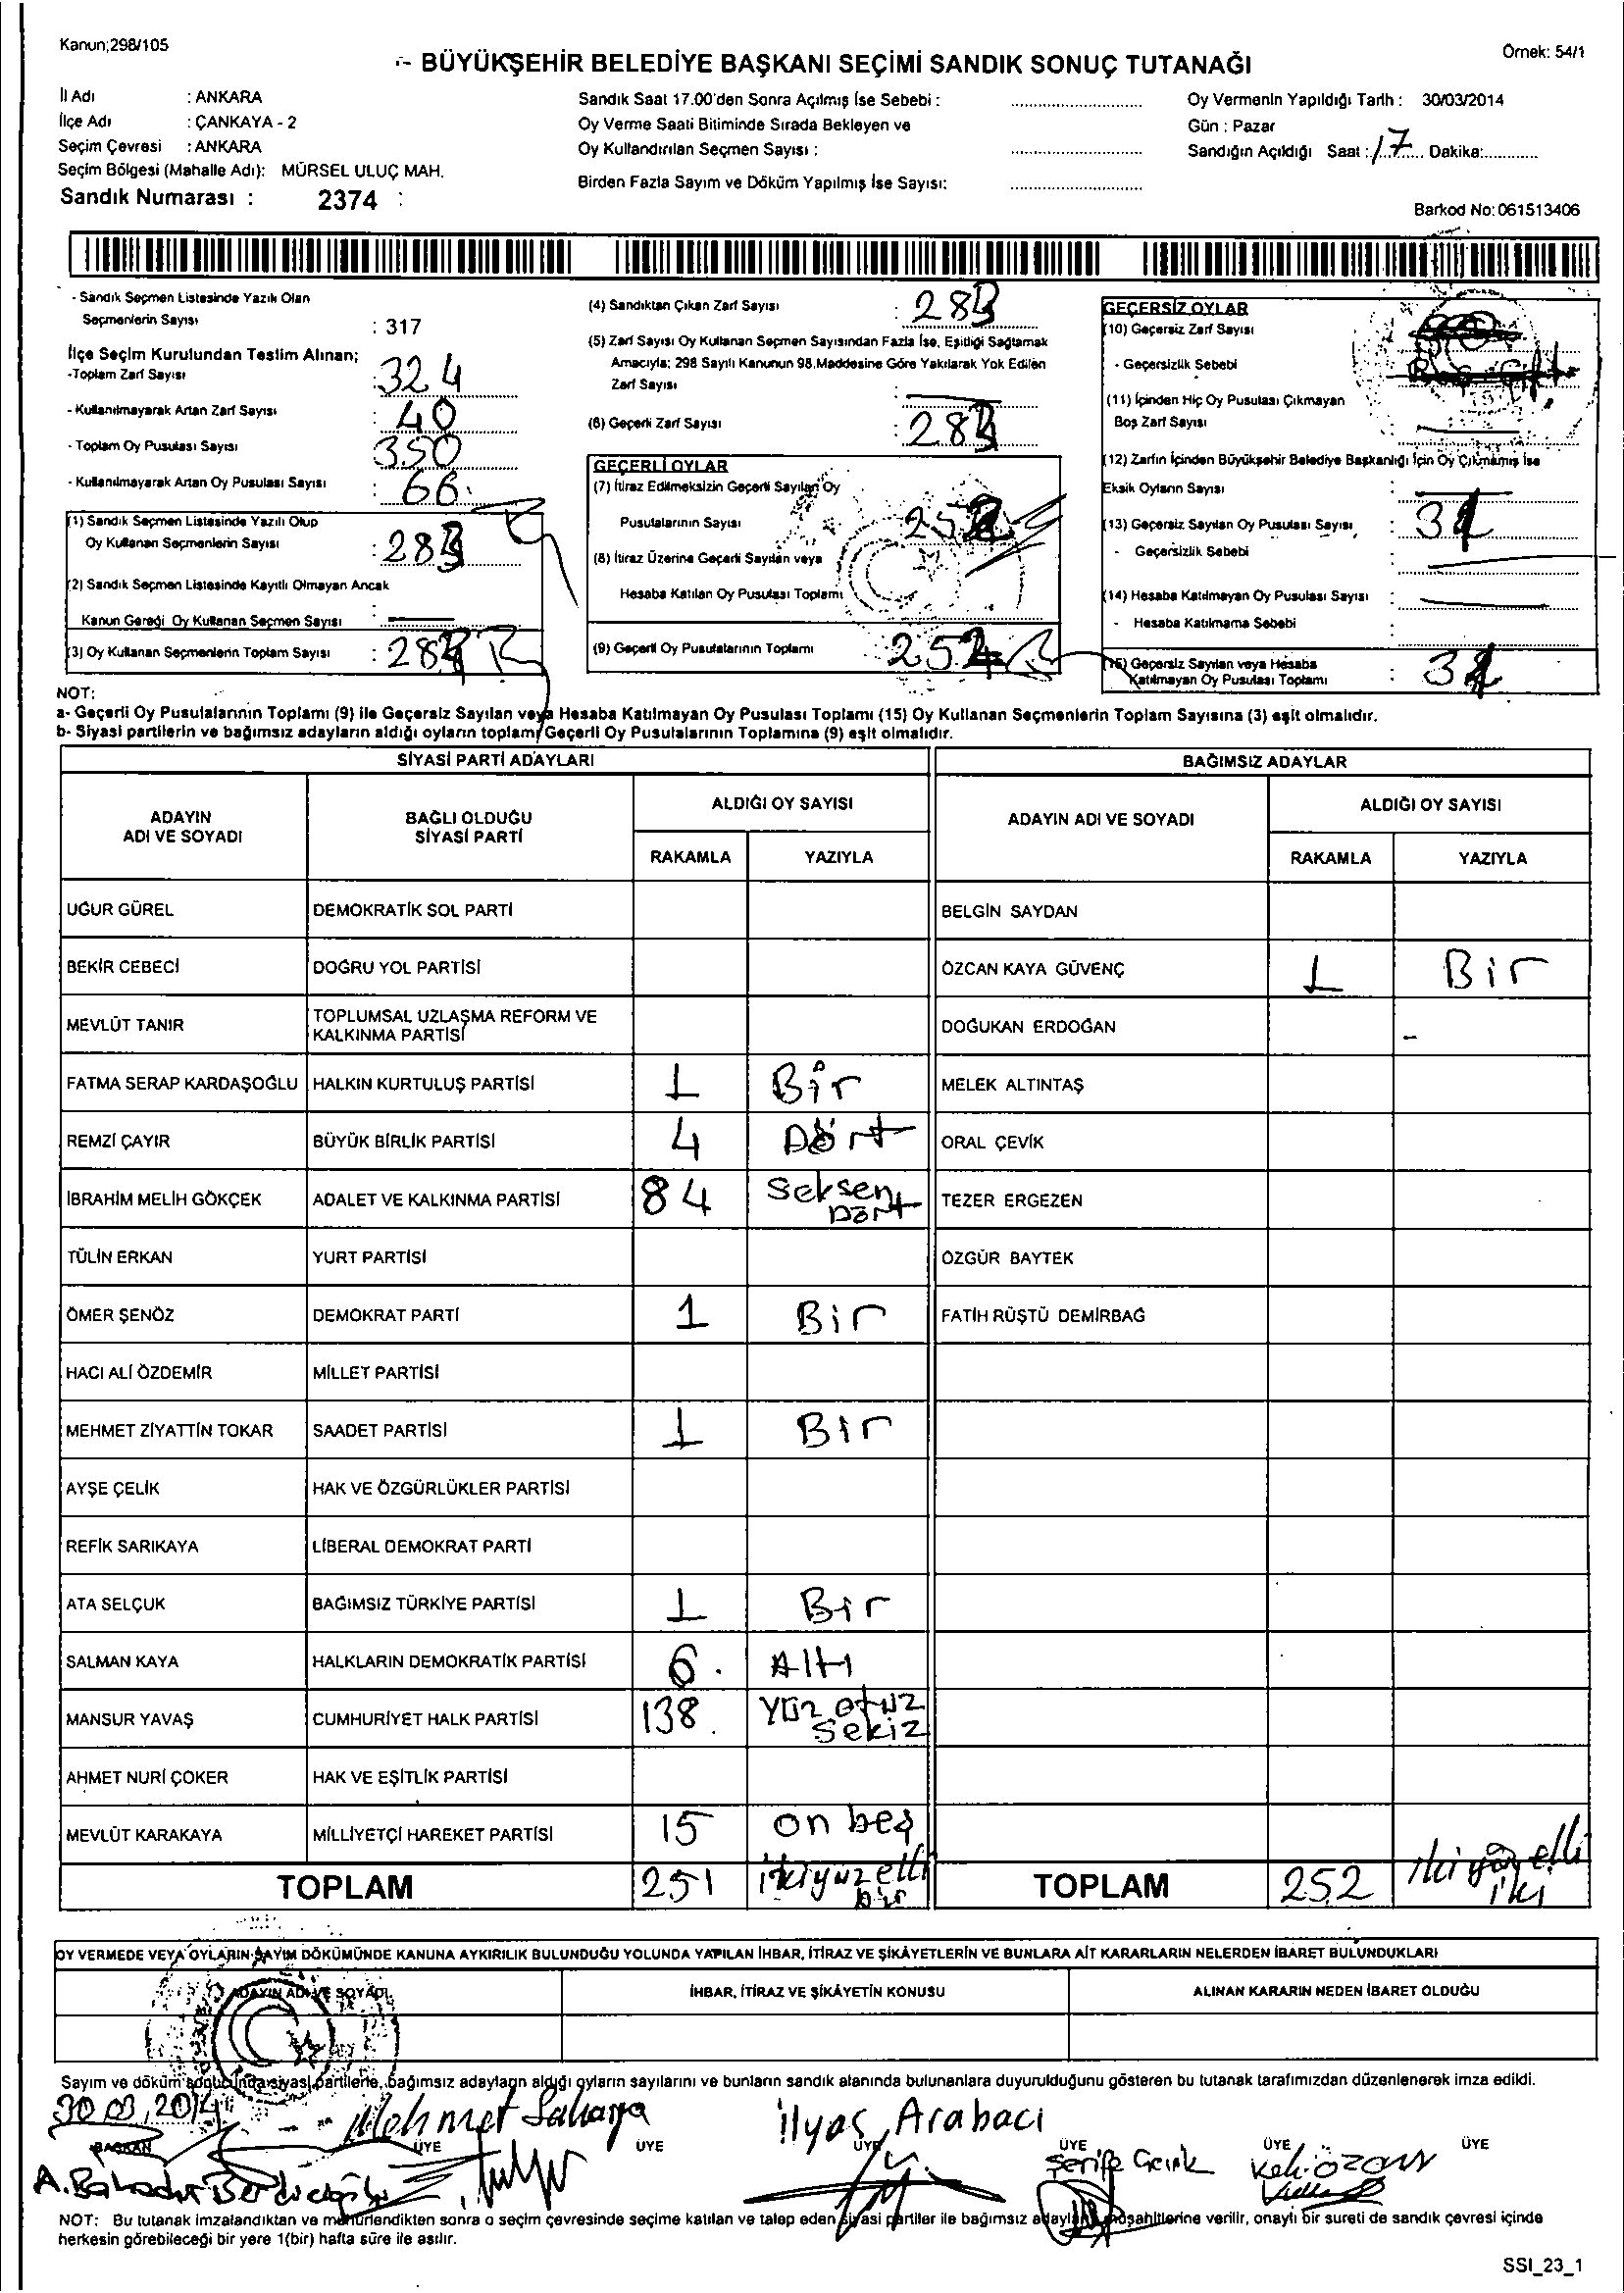 Kanun;298/105
Örnek: 54/1
BÜYÜKŞEHİR BELEDİYE BAŞKANI SEÇİMİ SANDIK SONUÇ TUTANAĞI
İl Adı : ANKARA
İlçe Adı : ÇANKAYA - 2
Seçim Çevresi : ANKARA
Seçim Bölgesi (Mahalle Adı): MÜRSEL ULUÇ MAH.
Sandık Numarası : 2374
Sandık Saat 17.00'den Sonra Açılmış İse Sebebi :
Oy Verme Saati Bitiminde Sırada Bekleyen ve
Oy Kullandırılan Seçmen Sayısı :
Birden Fazla Sayım ve Döküm Yapılmış İse Sayısı:
Oy Vermenin Yapıldığı Tarih : 30/03/2014
Gün : Pazar
Sandığın Açıldığı Saat : 17 Dakika:
Barkod No: 061513406
- Sandık Seçmen Listesinde Yazılı Olan
Seçmenlerin Sayısı : 317
İlçe Seçim Kurulundan Teslim Alınan;
-Toplam Zarf Sayısı : 324
- Kullanılmayarak Artan Zarf Sayısı : 40
- Toplam Oy Pusulası Sayısı : 350
- Kullanılmayarak Artan Oy Pusulası Sayısı : 66
(1) Sandık Seçmen Listesinde Yazılı Olup
Oy Kullanan Seçmenlerin Sayısı : 283
(2) Sandık Seçmen Listesinde Kayıtlı Olmayan Ancak
Kanun Gereği Oy Kullanan Seçmen Sayısı :
(3) Oy Kullanan Seçmenlerin Toplam Sayısı :
(4) Sandıktan Çıkan Zarf Sayısı : 283
(5) Zarf Sayısı Oy Kullanan Seçmen Sayısından Fazla İse, Eşitliği Sağlamak
Amacıyla; 298 Sayılı Kanunun 98.Maddesine Göre Yakılarak Yok Edilen
Zarf Sayısı :
(6) Geçerli Zarf Sayısı : 283
GEÇERLİ OYLAR
(7) İtiraz Edilmeksizin Geçerli Sayılan Oy
Pusulalarının Sayısı : 252
(8) İtiraz Üzerine Geçerli Sayılan veya
Hesaba Katılan Oy Pusulası Toplamı
(9) Geçerli Oy Pusulalarının Toplamı : 252
GEÇERSİZ OYLAR
(10) Geçersiz Zarf Sayısı
- Geçersizlik Sebebi
(11) İçinden Hiç Oy Pusulası Çıkmayan
Boş Zarf Sayısı :
(12) Zarfın İçinden Büyükşehir Belediye Başkanlığı İçin Oy Çıkmamış İse
Eksik Oyların Sayısı :
(13) Geçersiz Sayılan Oy Pusulası Sayısı : 31
- Geçersizlik Sebebi :
(14) Hesaba Katılmayan Oy Pusulası Sayısı :
- Hesaba Katılmama Sebebi :
(15) Geçersiz Sayılan veya Hesaba
Katılmayan Oy Pusulası Toplamı : 31
NOT:
a- Geçerli Oy Pusulalarının Toplamı (9) ile Geçersiz Sayılan veya Hesaba Katılmayan Oy Pusulası Toplamı (15) Oy Kullanan Seçmenlerin Toplam Sayısına (3) eşit olmalıdır.
b- Siyasi partilerin ve bağımsız adayların aldığı oyların toplamı Geçerli Oy Pusulalarının Toplamına (9) eşit olmalıdır.
SİYASİ PARTİ ADAYLARI
BAĞIMSIZ ADAYLAR
ADAYIN
ADI VE SOYADI
BAĞLI OLDUĞU
SİYASİ PARTİ
ALDIĞI OY SAYISI
RAKAMLA YAZIYLA
ADAYIN ADI VE SOYADI
ALDIĞI OY SAYISI
RAKAMLA YAZIYLA
UĞUR GÜREL DEMOKRATİK SOL PARTİ BELGİN SAYDAN
BEKİR CEBECİ DOĞRU YOL PARTİSİ ÖZCAN KAYA GÜVENÇ 1 Bir
MEVLÜT TANIR TOPLUMSAL UZLAŞMA REFORM VE
KALKINMA PARTİSİ DOĞUKAN ERDOĞAN -
FATMA SERAP KARDAŞOĞLU HALKIN KURTULUŞ PARTİSİ 1 Bir MELEK ALTINTAŞ
REMZİ ÇAYIR BÜYÜK BİRLİK PARTİSİ 4 Dört ORAL ÇEVİK
İBRAHİM MELİH GÖKÇEK ADALET VE KALKINMA PARTİSİ 84 Seksen
Dört TEZER ERGEZEN
TÜLİN ERKAN YURT PARTİSİ ÖZGÜR BAYTEK
ÖMER ŞENÖZ DEMOKRAT PARTİ 1 Bir FATİH RÜŞTÜ DEMİRBAĞ
HACI ALİ ÖZDEMİR MİLLET PARTİSİ
MEHMET ZİYATTİN TOKAR SAADET PARTİSİ 1 Bir
AYŞE ÇELİK HAK VE ÖZGÜRLÜKLER PARTİSİ
REFİK SARIKAYA LİBERAL DEMOKRAT PARTİ
ATA SELÇUK BAĞIMSIZ TÜRKİYE PARTİSİ 1 Bir
SALMAN KAYA HALKLARIN DEMOKRATİK PARTİSİ 6 Altı
MANSUR YAVAŞ CUMHURİYET HALK PARTİSİ 138 Yüz otuz
Sekiz
AHMET NURİ ÇÖKER HAK VE EŞİTLİK PARTİSİ
MEVLÜT KARAKAYA MİLLİYETÇİ HAREKET PARTİSİ 15 on beş
TOPLAM 251 ikiyüzelli
bir
TOPLAM 252 iki yüz elli
iki
OY VERMEDE VEYA OYLARIN SAYIM DÖKÜMÜNDE KANUNA AYKIRILIK BULUNDUĞU YOLUNDA YAPILAN İHBAR, İTİRAZ VE ŞİKAYETLERİN VE BUNLARA AİT KARARLARIN NELERDEN İBARET BULUNDUKLARI
ADAYIN ADI VE SOYADI İHBAR, İTİRAZ VE ŞİKAYETİN KONUSU ALINAN KARARIN NEDEN İBARET OLDUĞU
Sayım ve döküm sonucunda siyasi partilerle, bağımsız adayların aldığı oyların sayılarını ve bunların sandık alanında bulunanlara duyurulduğunu gösteren bu tutanak tarafımızdan düzenlenerek imza edildi.
30.03.2014 Mehmet İlyas Arabacı
BAŞKAN ÜYE ÜYE ÜYE ÜYE ÜYE ÜYE
Şerife
NOT: Bu tutanak imzalandıktan ve mühürlendikten sonra o seçim çevresinde seçime katılan ve talep eden siyasi partiler ile bağımsız adayların müşahitlerine verilir, onaylı bir sureti de sandık çevresi içinde
herkesin görebileceği bir yere 1(bir) hafta süre ile asılır.
SSI_23_1